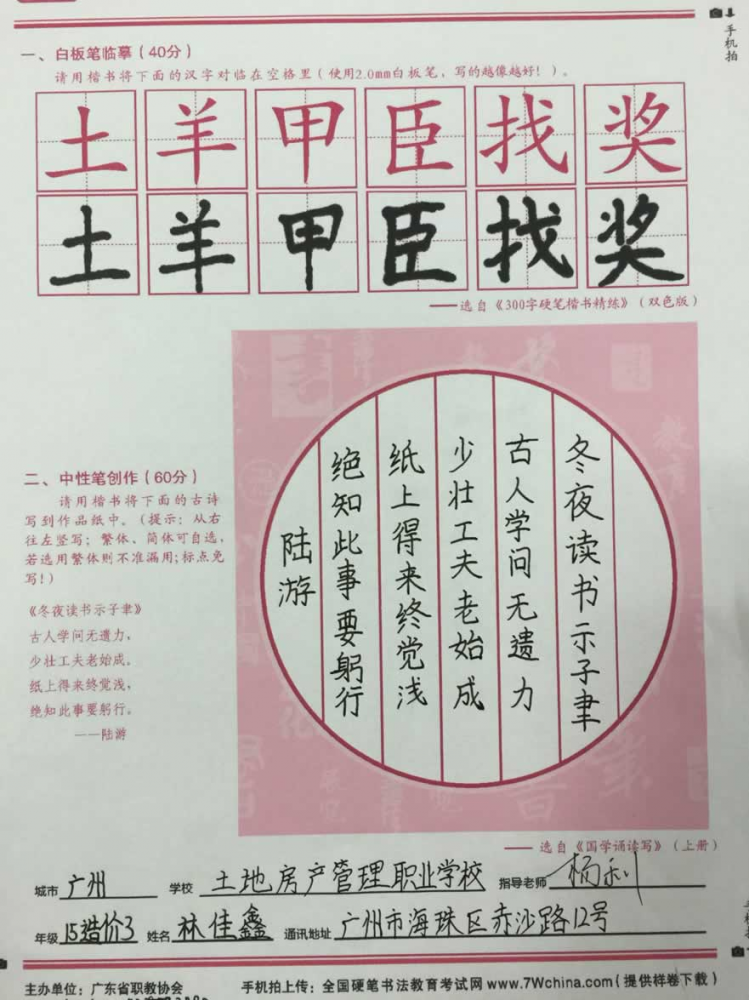 手机拍
一、白板笔临摹（40分）
请用楷书将下面的汉字对临在空格里（使用2.0mm白板笔，写的越像越好！）。
土羊甲臣找奖
土羊甲臣找奖
——选自《300字硬笔楷书精练》（双色版）
二、中性笔创作（60分）
请用楷书将下面的古诗
写到作品纸中。（提示：从右
往左竖写；繁体、简体可自选，
若选用繁体则不准漏用;标点免
写！）
《冬夜读书示子聿》
古人学问无遗力，
少壮工夫老始成。
纸上得来终觉浅，
绝知此事要躬行。
——陆游
冬夜读书示子聿
古人学问无遗力
少壮工夫老始成
纸上得来终觉浅
绝知此事要躬行
陆游
——选自《国学诵读写》（上册）
城市 广州 学校 土地房产管理职业学校 指导老师 杨利
年级 15造价3 姓名 林佳鑫 通讯地址 广州市海珠区赤沙路12号
主办单位：广东省职教协会 手机拍上传：全国硬笔书法教育考试网 www.7Wchina.com（提供样卷下载）